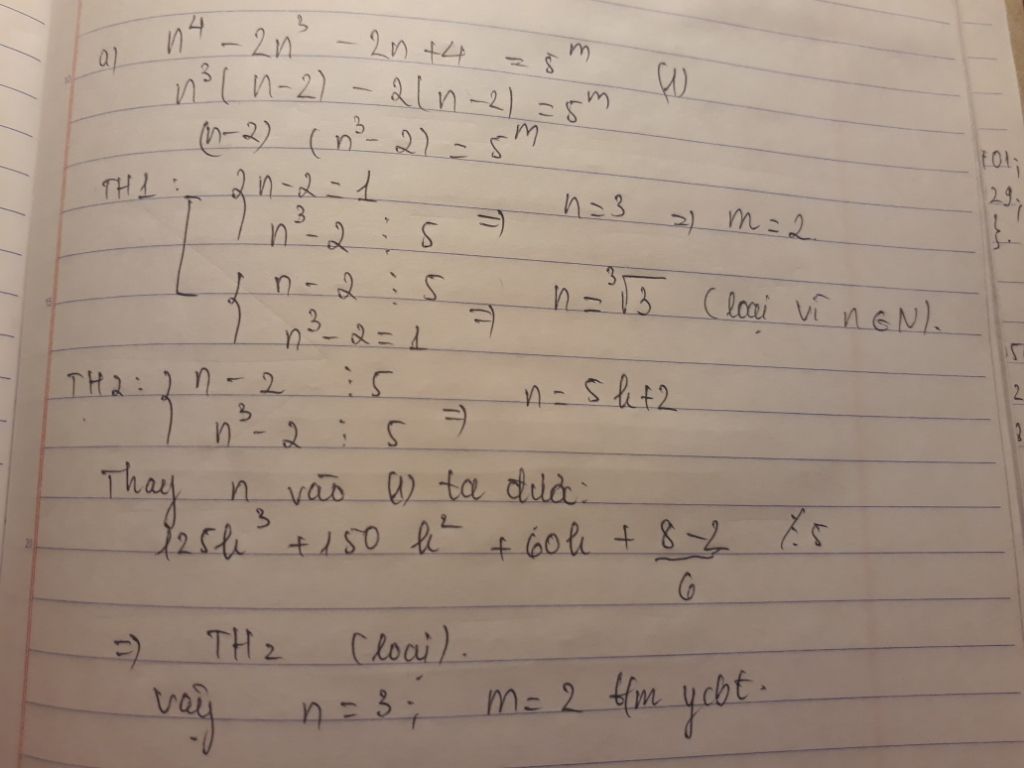 a) n⁴ - 2n³ - 2n + 4 = 5ᵐ (1)
n³(n-2) - 2(n-2) = 5ᵐ
(n-2) (n³-2) = 5ᵐ
TH1: n-2 = 1
n³-2 ⋮ 5 => n=3 => m=2
n-2 ⋮ 5
n³-2=1 => n=∛3 (loại vì n∈N).
TH2: n-2 ⋮ 5
n³-2 ⋮ 5 => n=5k+2
Thay n vào (1) ta được:
125k³ +150 k² + 60k + 8-2 ⋮̸ 5
6
=> TH2 (loại).
Vậy n=3; m=2 t/m ycbt.
101;
29;
}.
5
2
8